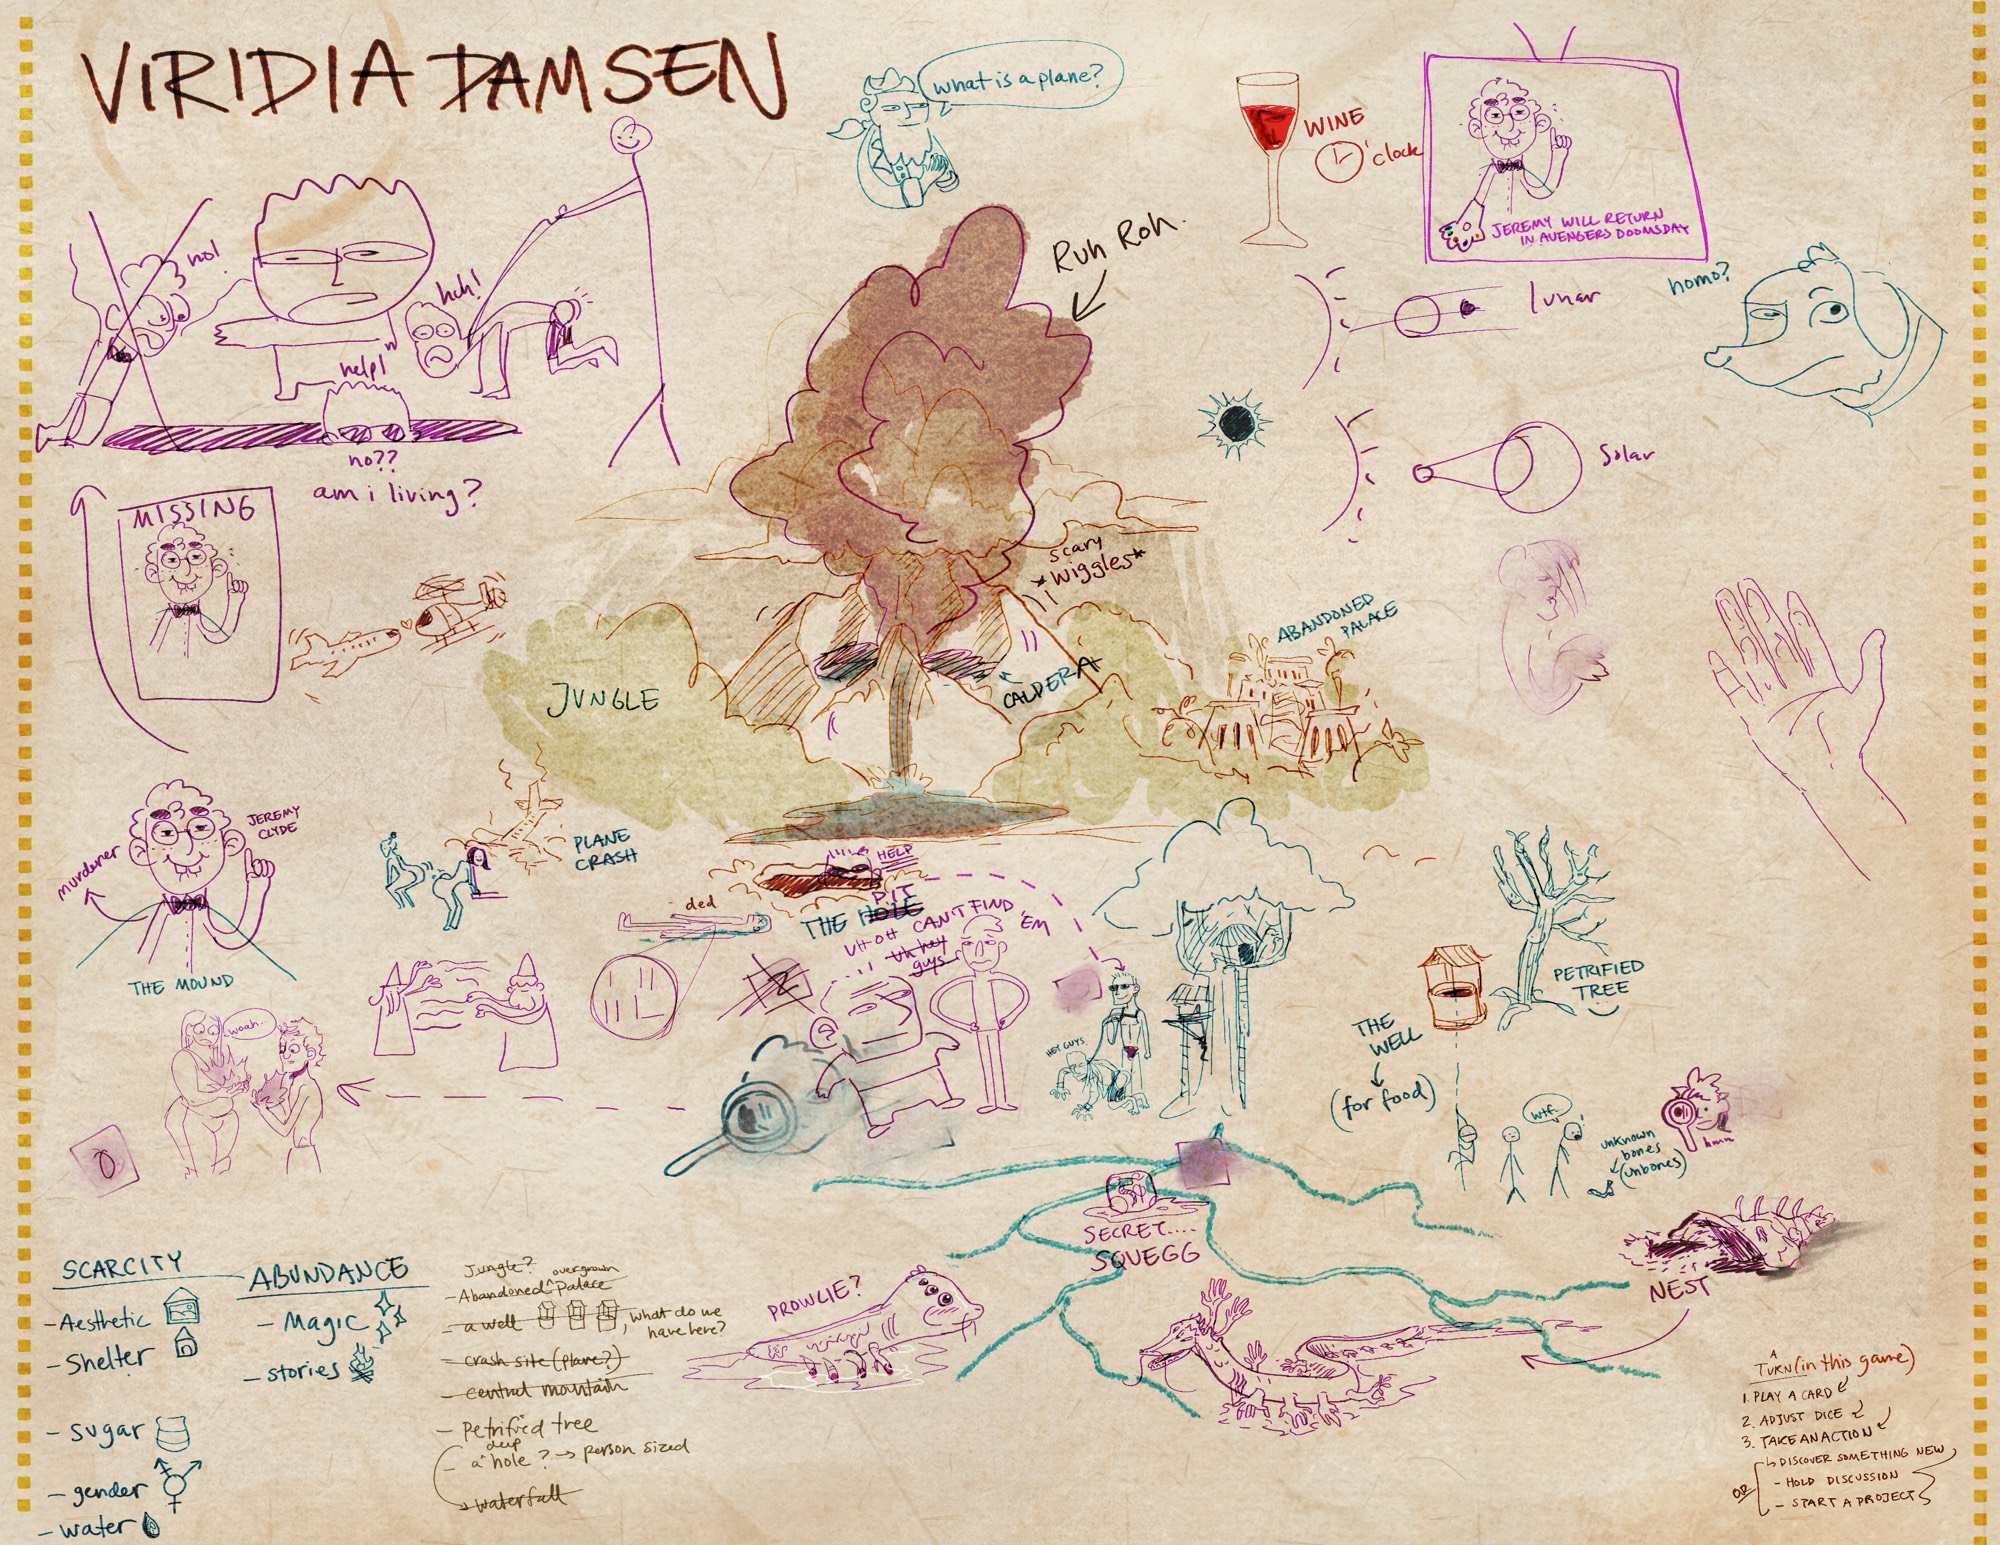 VIRIDIA DAMSEN
what is a plane?
WINE
O'clock
JEREMY WILL RETURN
IN AVENGERS DOOMSDAY
Ruh Roh.
no!
huh!
help!
no??
am i living?
lunar
homo?
solar
MISSING
scary
*wiggles*
ABANDONED
PALACE
JUNGLE
CALDERA
JEREMY
CLYDE
murderer
THE MOUND
PLANE
CRASH
HELP
ded
PIT
THE HOLE
UH-OH CAN'T FIND 'EM
uh hey
guys
HEY GUYS
PETRIFIED
TREE
THE
WELL
(for food)
woah.
wtf.
unknown
bones
(unbones)
hmm
SECRET....
SQUEGG
NEST
PROWLIE?
SCARCITY
- Aesthetic
- Shelter
- sugar
- gender
- water
ABUNDANCE
- Magic
- stories
Jungle?
overgrown
- Abandoned ^ Palace
- a well, what do we
have here?
- crash site (plane?)
- central mountain
- Petrified tree
deep
- a ^ hole? → person sized
→ waterfall
A
TURN (in this game)
1. PLAY A CARD
2. ADJUST DICE
3. TAKE AN ACTION
↳ DISCOVER SOMETHING NEW
OR
- HOLD DISCUSSION
- START A PROJECT